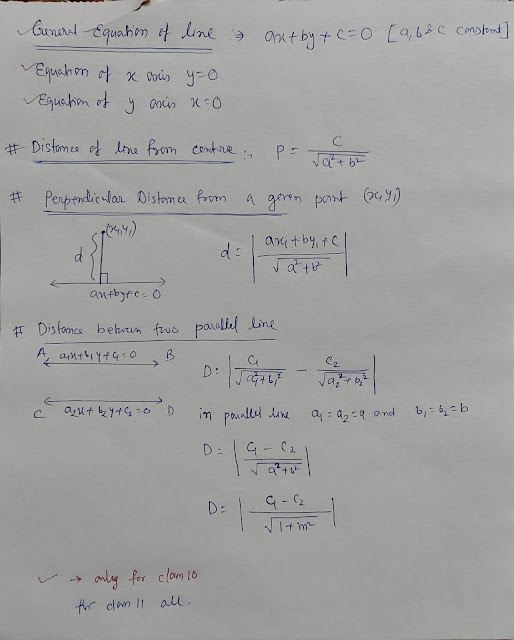 ✓ General Equation of line :→ ax+by+c=0 [a,b & c constant]
✓ Equation of x axis y=0
✓ Equation of y axis x=0
# Distance of line from centre :- P = c/√(a²+b²)
# Perpendicular Distance from a given point (x₁,y₁)
(x₁,y₁)
d
d = |(ax₁+by₁+c)/√(a²+b²)|
ax+by+c=0
# Distance between two parallel line
A a₁x+b₁y+c₁=0 B
D = |c₁/√(a₁²+b₁²) - c₂/√(a₂²+b₂²)|
C a₂x+b₂y+c₂=0 D in parallel line a₁=a₂=a and b₁=b₂=b
D = |(c₁-c₂)/√(a²+b²)|
D = |(c₁-c₂)/√(1+m²)|
✓ → only for class 10
for class 11 all.